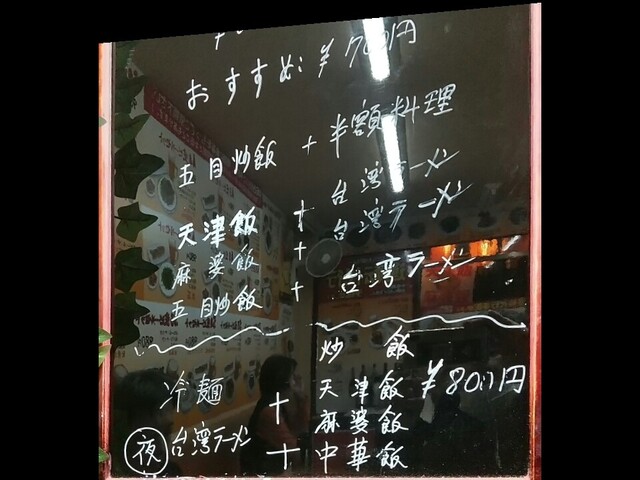 おすすめ: ¥700円
五目炒飯 + 半額料理
台湾ラーメン
天津飯 + 台湾ラーメン
麻婆飯 +
五目炒飯 + 台湾ラーメン
炒飯
冷麺 + 天津飯 ¥800円
麻婆飯
夜 台湾ラーメン + 中華飯